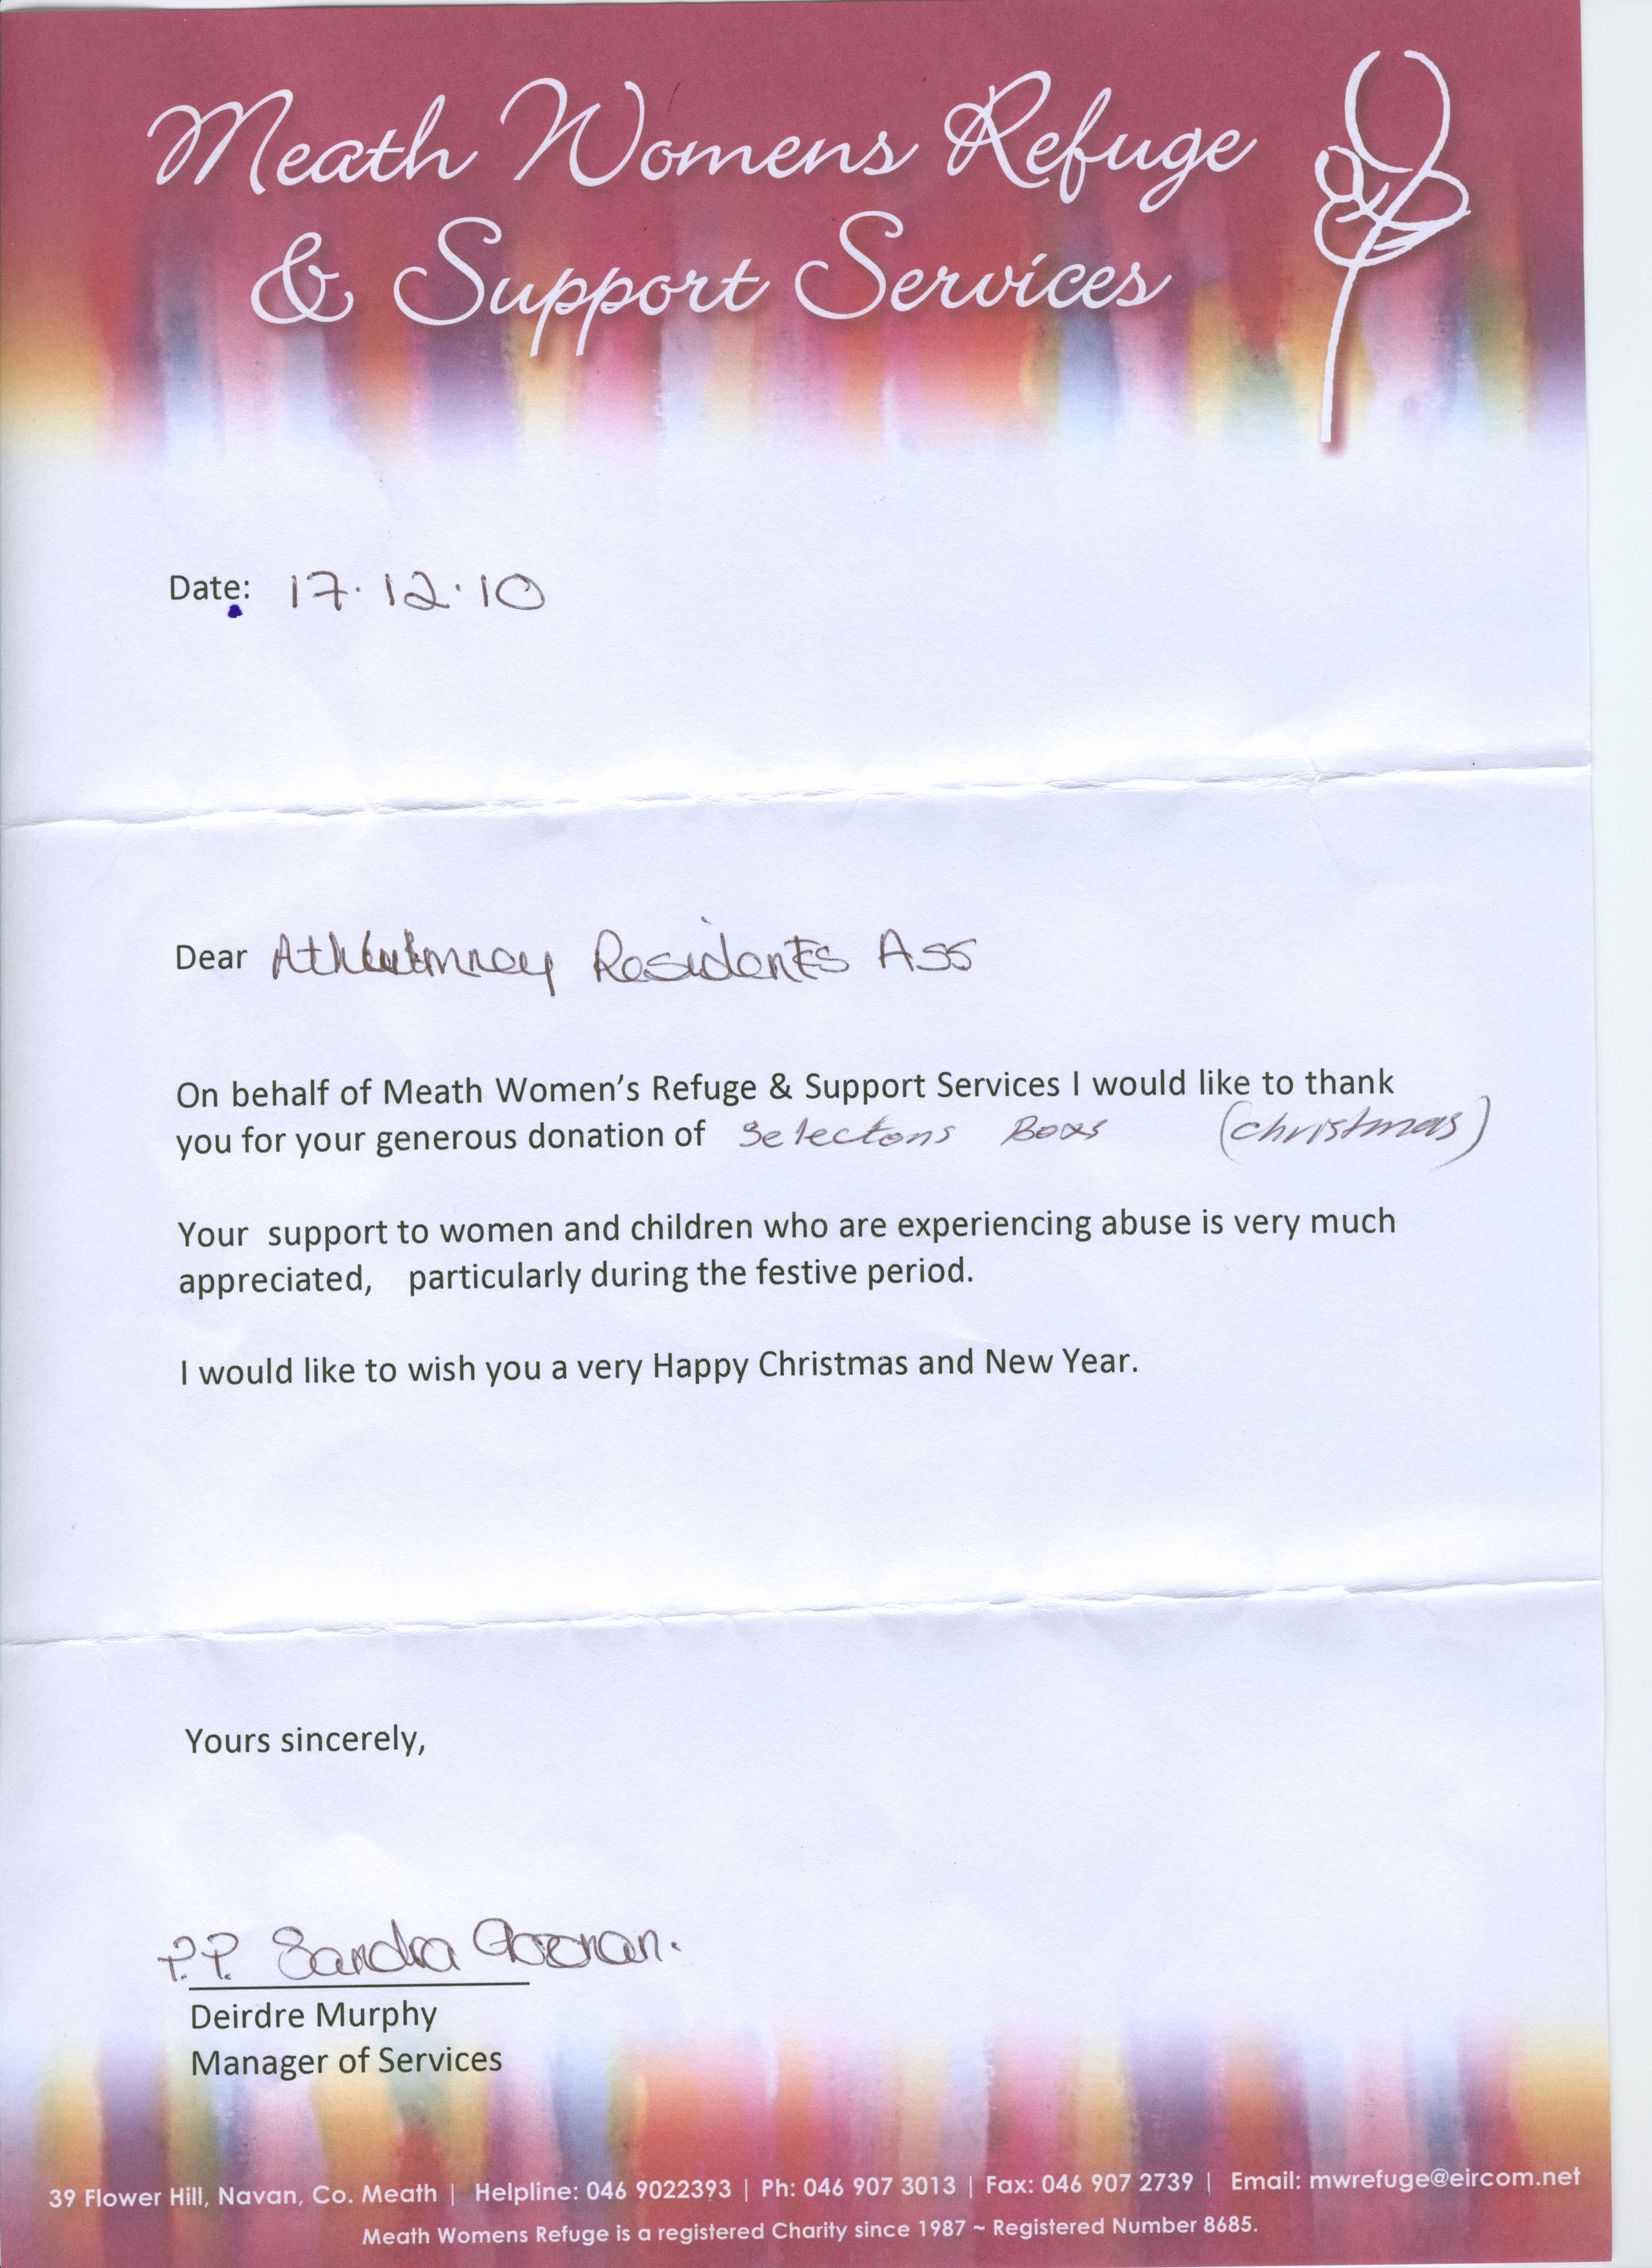 Meath Womens Refuge
& Support Services
Date: 17.12.10
Dear Residents Ass
On behalf of Meath Women's Refuge & Support Services I would like to thank
you for your generous donation of Selectons Boxs (christmas)
Your support to women and children who are experiencing abuse is very much
appreciated, particularly during the festive period.
I would like to wish you a very Happy Christmas and New Year.
Yours sincerely,
P.P. Sandra
Deirdre Murphy
Manager of Services
39 Flower Hill, Navan, Co. Meath | Helpline: 046 9022393 | Ph: 046 907 3013 | Fax: 046 907 2739 | Email: mwrefuge@eircom.net
Meath Womens Refuge is a registered Charity since 1987 ~ Registered Number 8685.